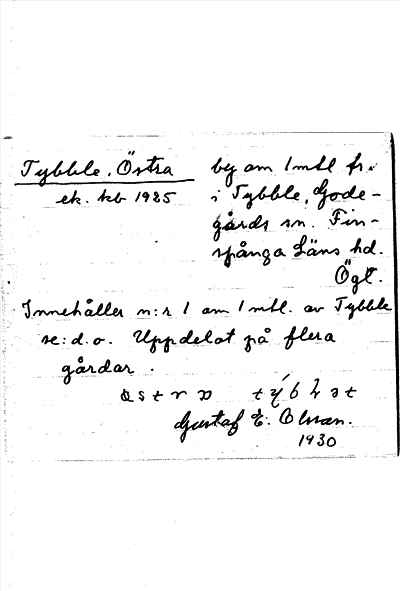 Tybble, Östra
ek. kb 1925
by om 1 mtl fr.
i Tybble, Gode-
gårds sn. Fin-
spånga Läns hd.
Ögl.
Innehåller n:r 1 om 1 mtl. av Tybble
se: d. o. Uppdelat på flera
gårdar.
Gustaf E. Olsson.
1930